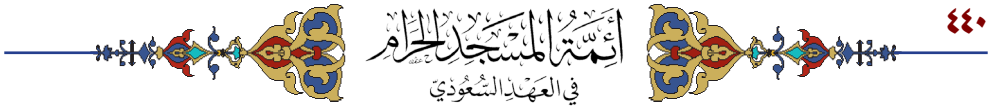 ٤٤٠
أَئِمَّةُ المَسْجِدِ الحَرَامِ
في العَهْدِ السُّعُودِيّ